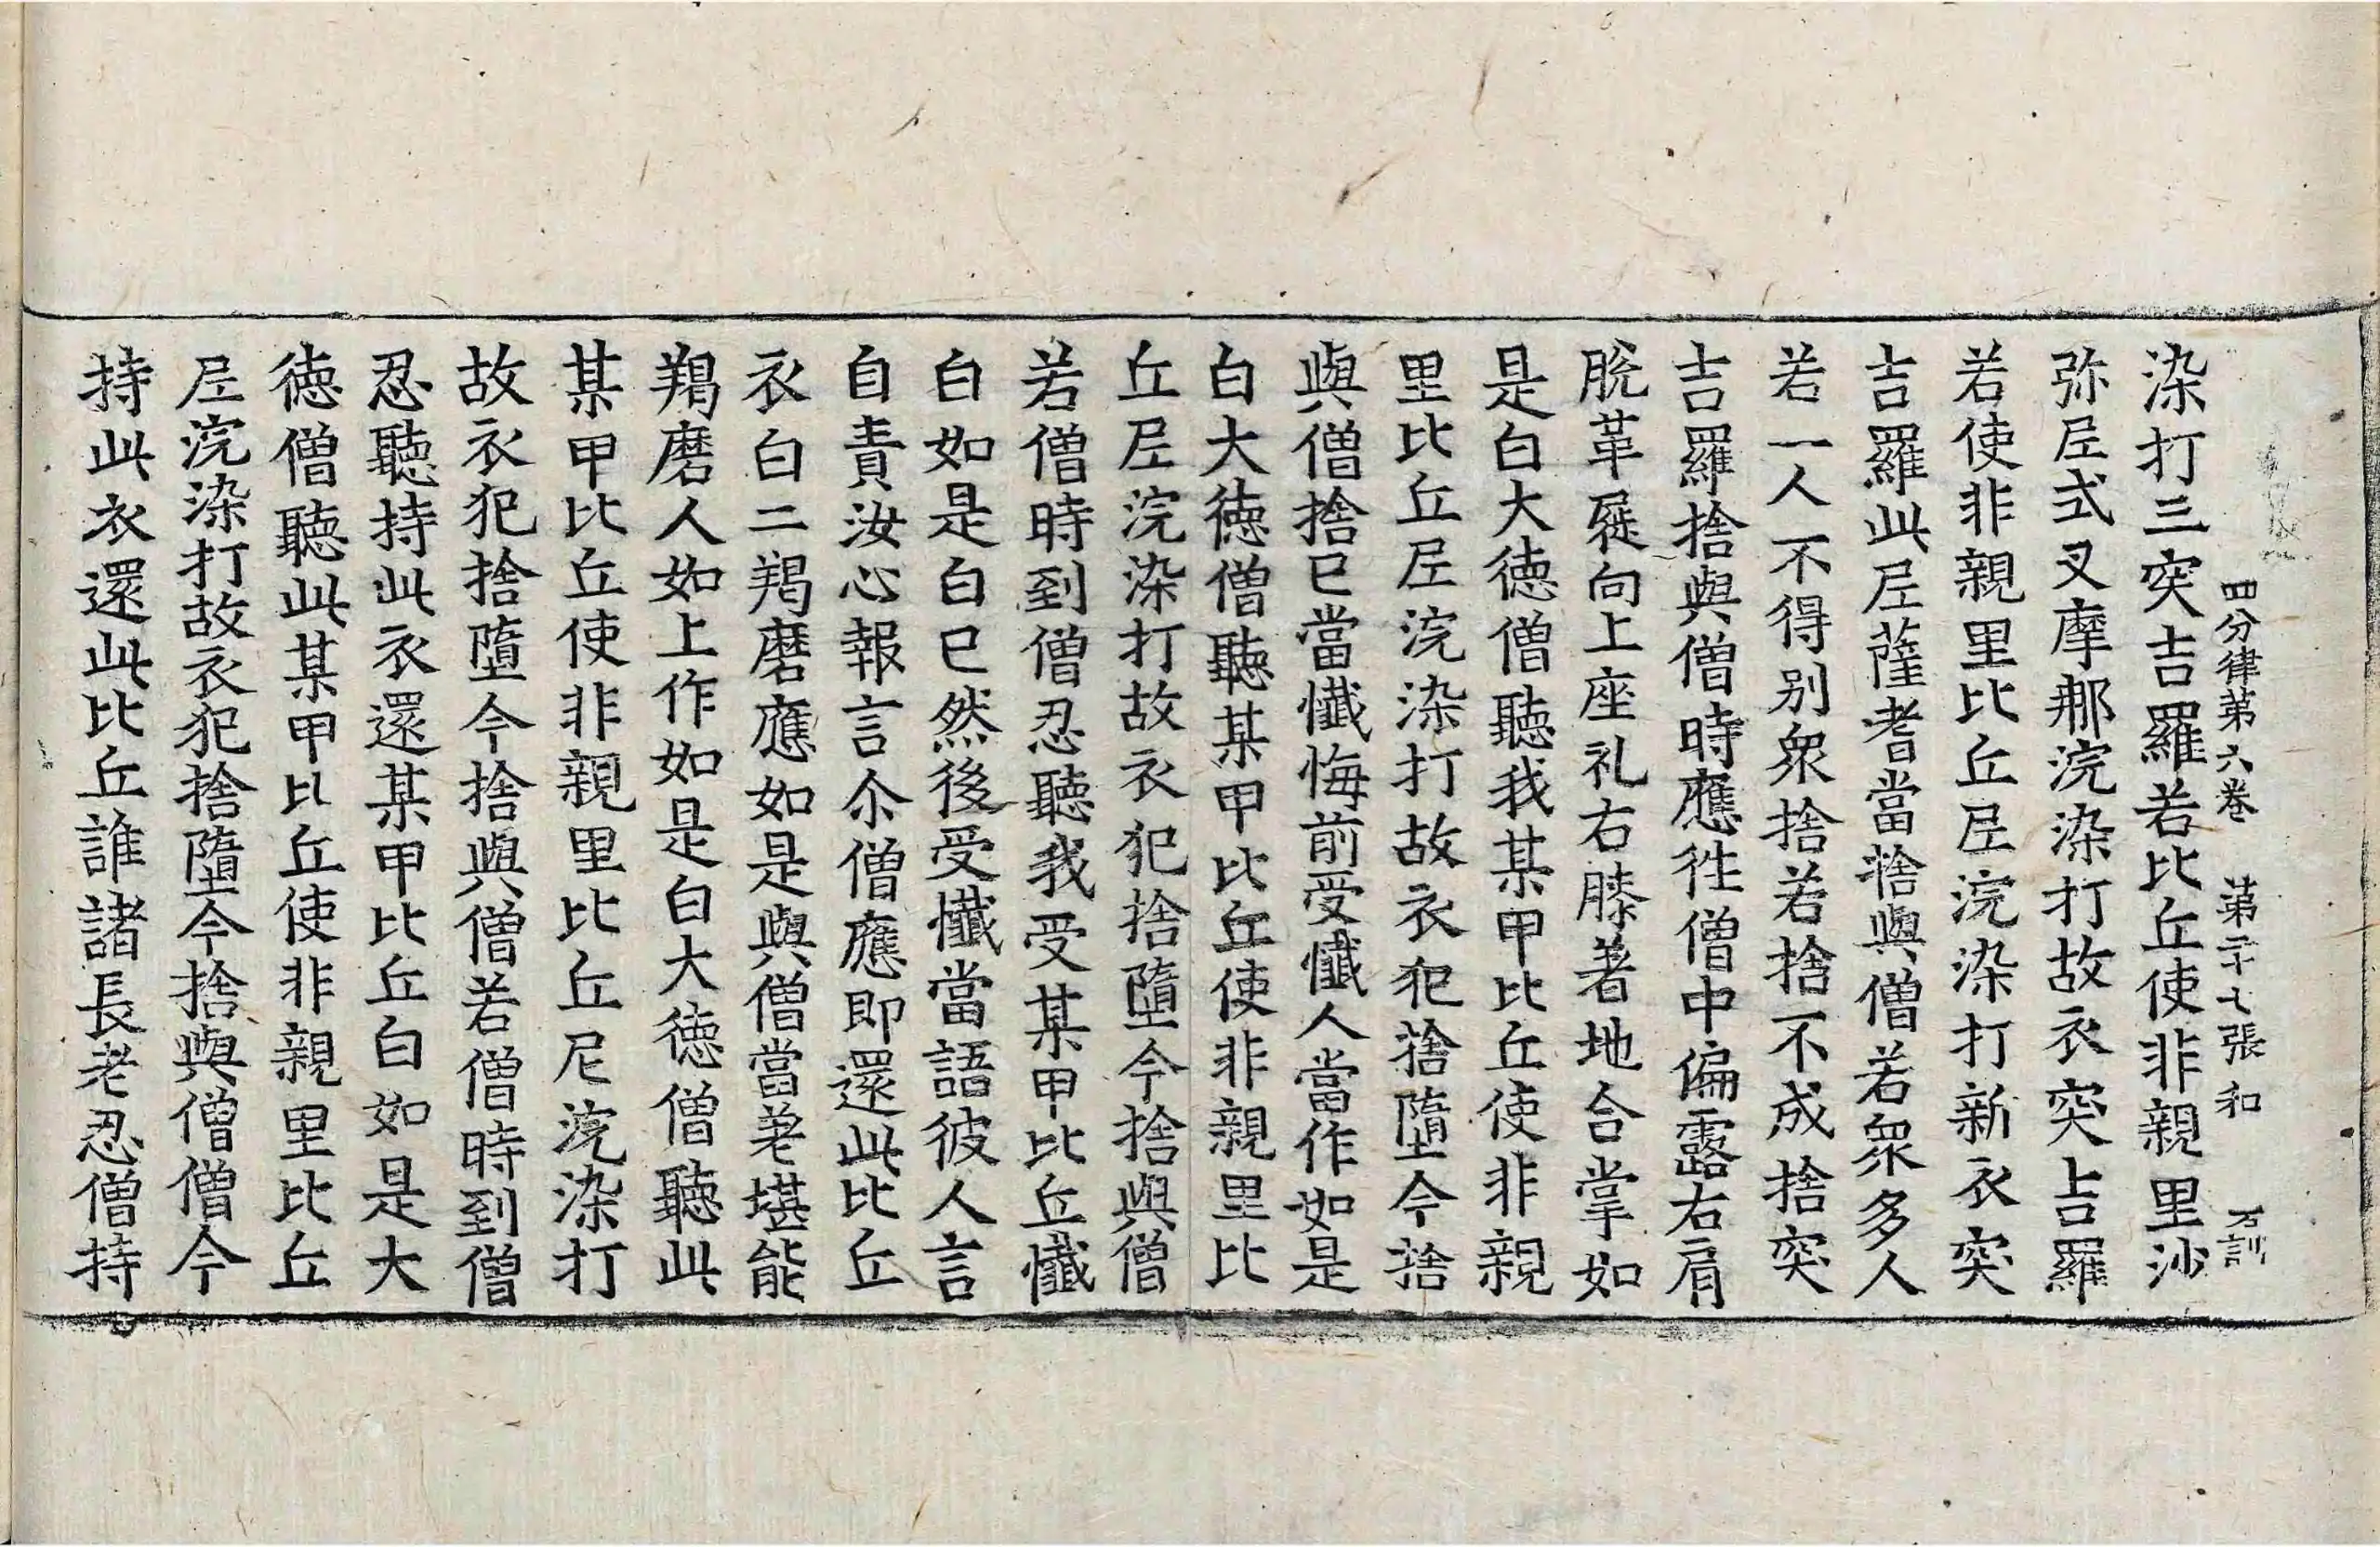 四分律第六卷　第二十七張　和　万訓
染打三突吉羅若比丘使非親里沙
弥尼式叉摩那浣染打故衣突吉羅
若使非親里比丘尼浣染打新衣突
吉羅此尼薩耆當捨與僧若衆多人
若一人不得别衆捨若捨不成捨突
吉羅捨與僧時應徃僧中偏露右肩
脫革屣向上座礼右膝著地合掌如
是白大德僧聽我某甲比丘使非親
里比丘尼浣染打故衣犯捨墮今捨
與僧捨已當懺悔前受懺人當作如是
白大德僧聽某甲比丘使非親里比
丘尼浣染打故衣犯捨墮今捨與僧
若僧時到僧忍聽我受某甲比丘懺
白如是白已然後受懺當語彼人言
自責汝心報言尒僧應即還此比丘
衣白二羯磨應如是與僧當差堪能
羯磨人如上作如是白大德僧聽此
某甲比丘使非親里比丘尼浣染打
故衣犯捨墮今捨與僧若僧時到僧
忍聽持此衣還某甲比丘白如是大
德僧聽此某甲比丘使非親里比丘
尼浣染打故衣犯捨墮今捨與僧僧今
持此衣還此比丘誰諸長老忍僧持